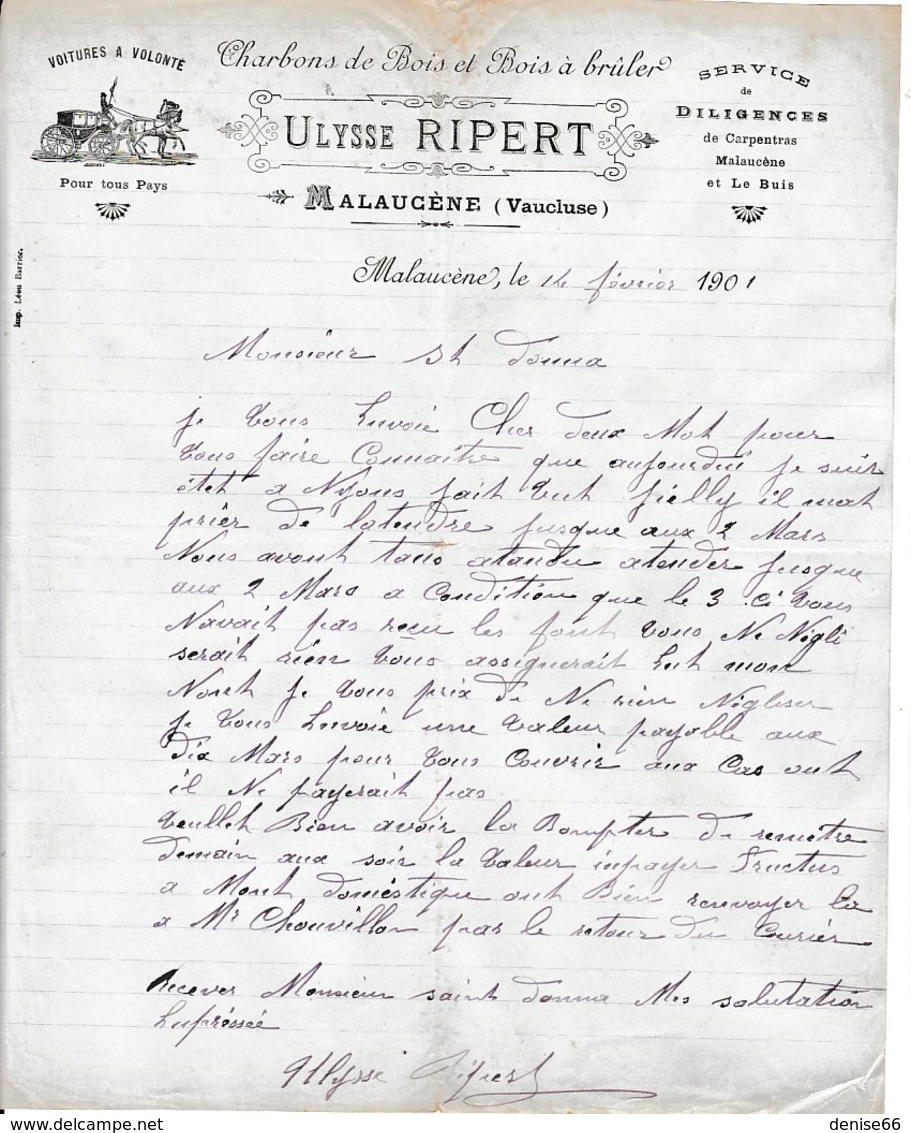 VOITURES A VOLONTÉ
Pour tous Pays
Charbons de Bois et Bois à brûler
ULYSSE RIPERT
MALAUCÈNE (Vaucluse)
SERVICE
de
DILIGENCES
de Carpentras
Malaucène
et Le Buis
Imp. Léon Barrier.
Malaucène, le 14 février 1901
Monsieur St donna
je vous Envoie Ches deux Mot pour
vous faire Connaître que aujourdui je suis
étét a Nyons fait but il mat
prier de latendre jusque aux 2 Mars
Nous avont tans atandu atender jusque
aux 2 Mars a Condition que le 3 ci vous
Navait pas reçu les font vous Ne Nigli
serait rien vous assignerait Eut mon
Nont je vous prix de Ne rien Nigliser
je vous Envoie une valeur payable aux
dix Mars pour vous Couvrir aux Cas out
il Ne payerait pas
veullet Bien avoir la Bompter de remetre
demain aux soir la valeur inpayer Fructus
a Mont doméstique out Bien renvoyer la
a Mr Chouvillon par le retour du Curiér
Recever Monsieur saint donna Mes salutation
Enpréssée
Ulysse Ripert
denise66